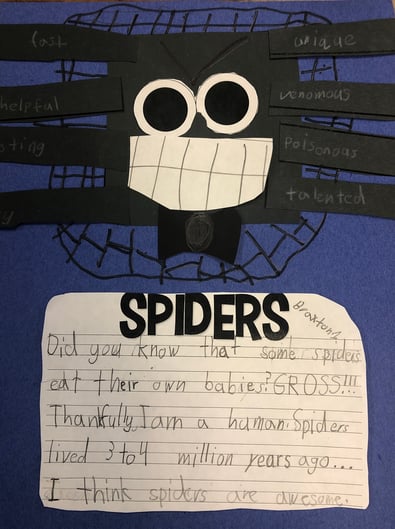 fast
unique
helpful
venomous
poisonous
talented
SPIDERS
Did you know that some spiders
eat their own babies? GROSS!!!
Thankfully, I am a human. Spiders
lived 3 to 4 million years ago...
I think spiders are awesome.